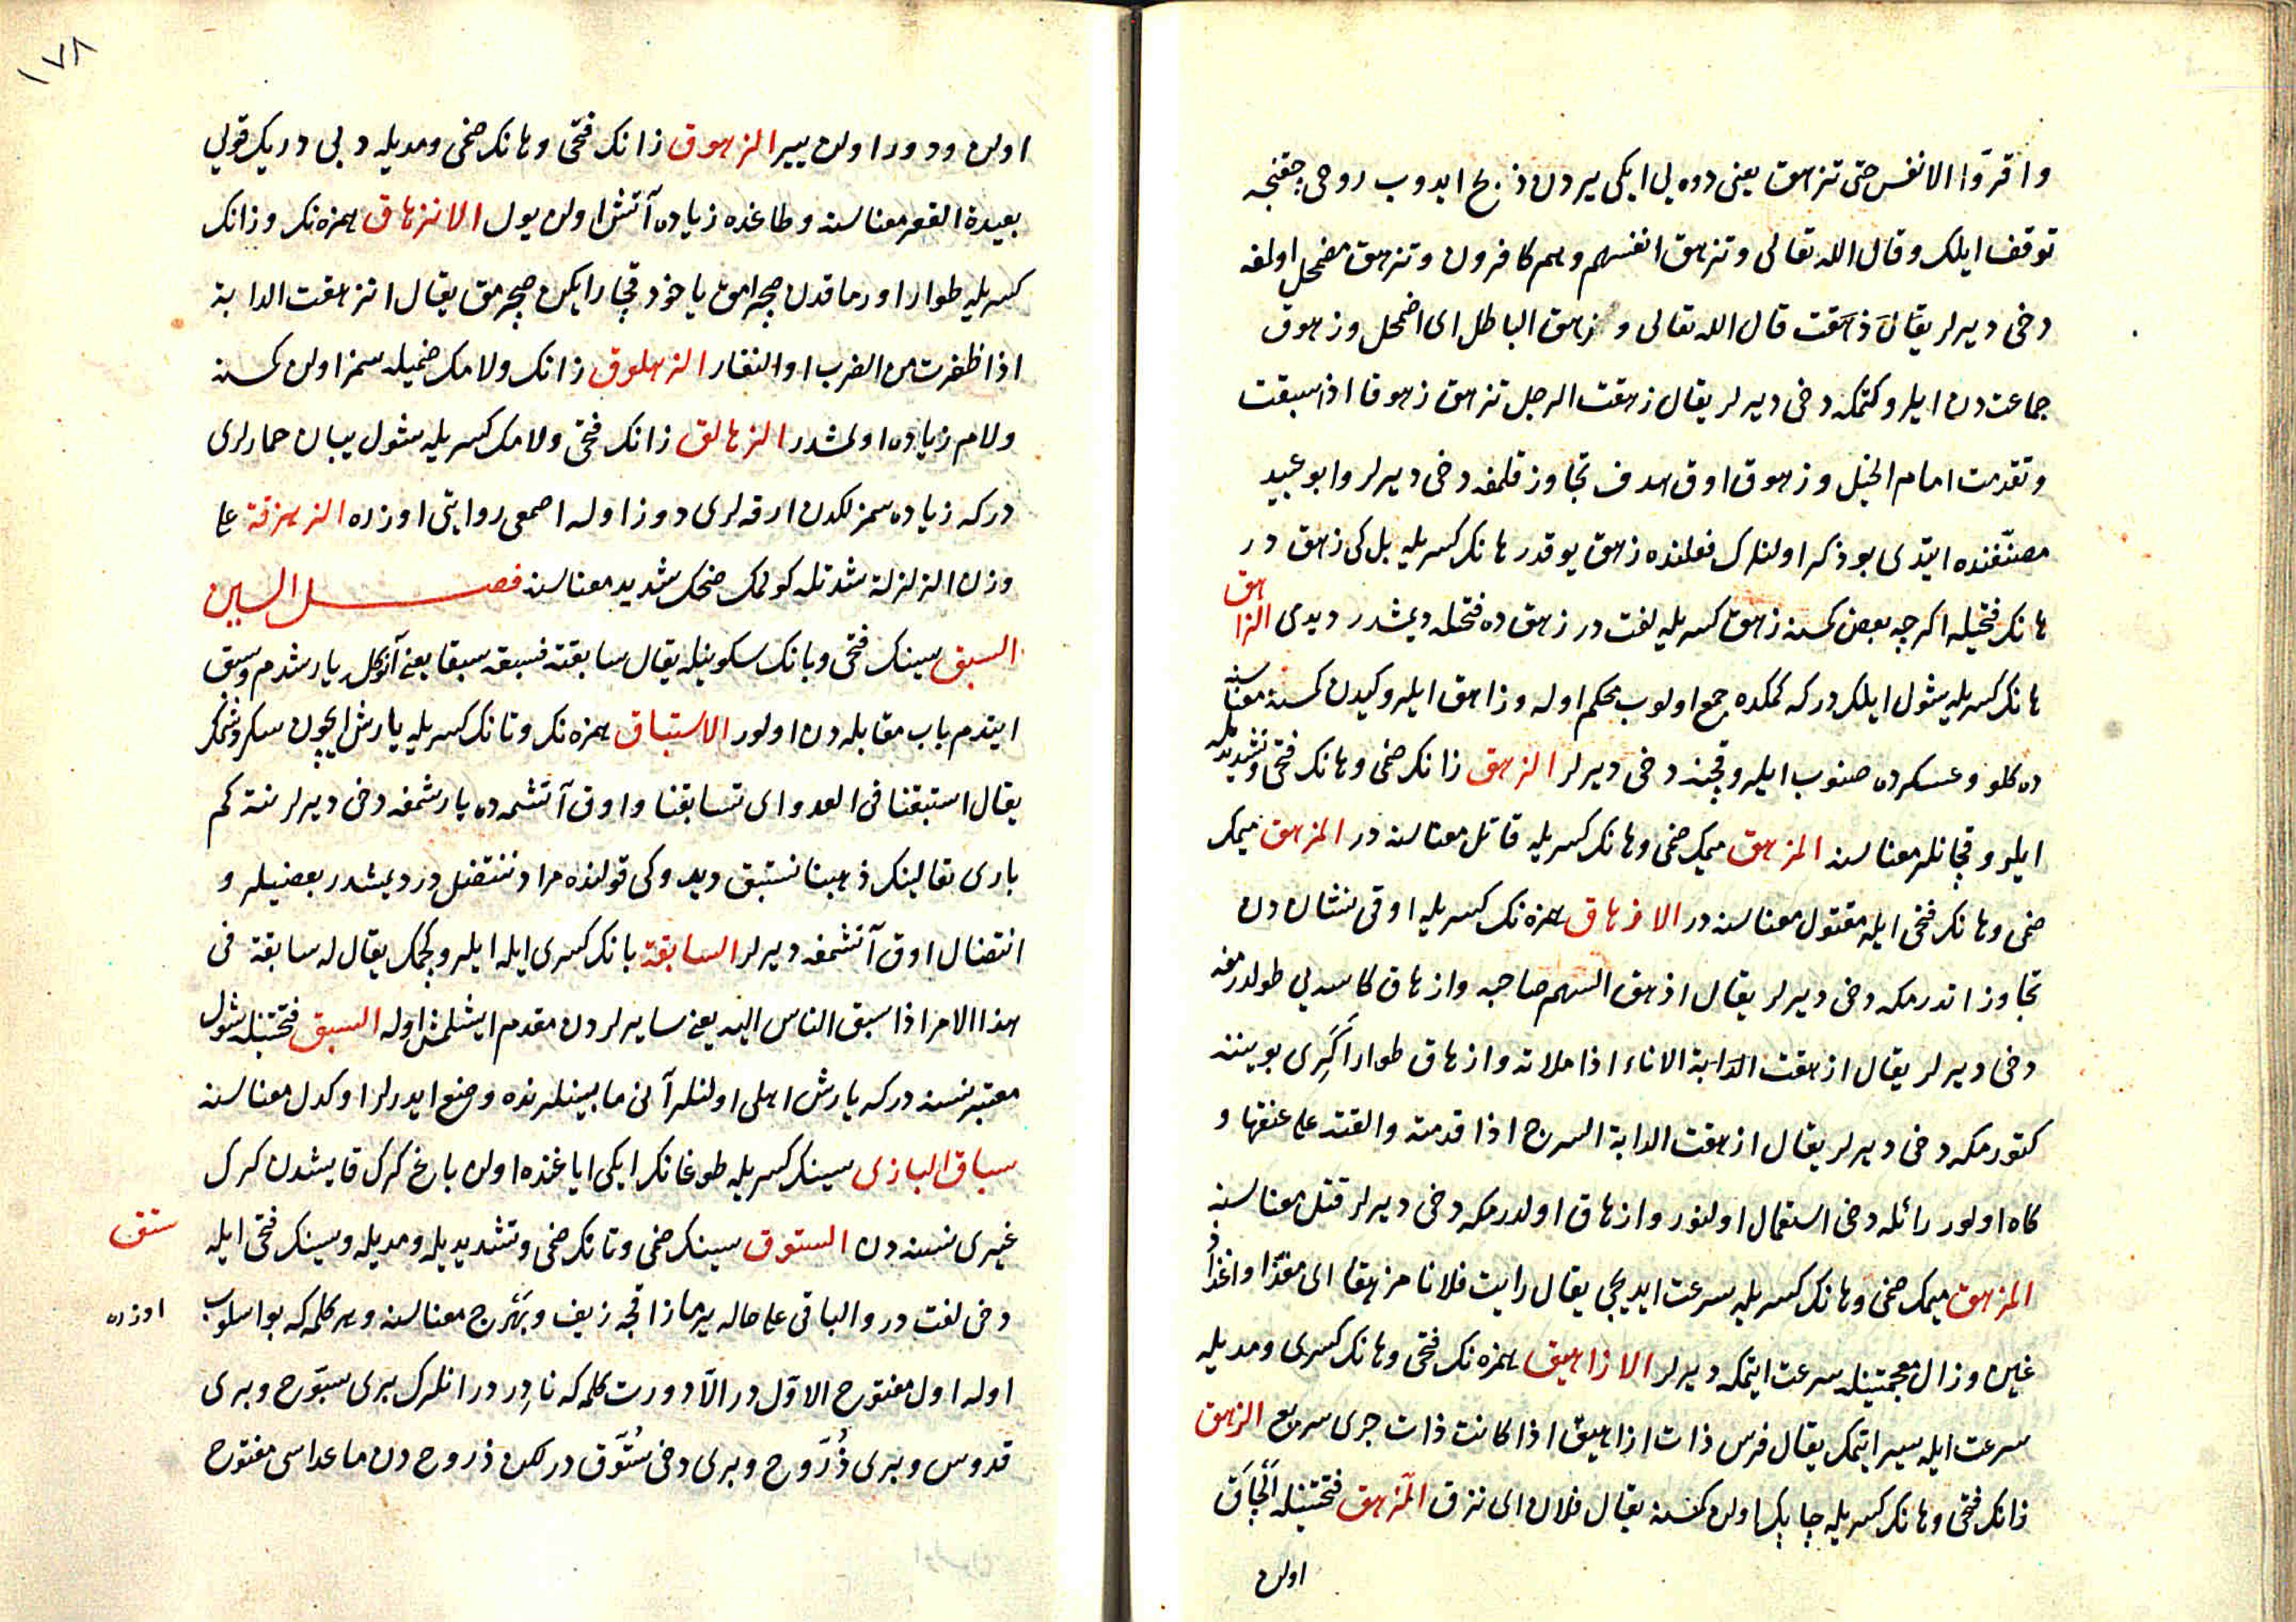 واقرّوا الانفس حتى تزهق يعنى دوه يى ايكى يردن ذبح ايدوب روحى چقنجه
توقف ايلك وقال الله تعالى وتزهق انفسهم وهم كافرون وتزهق مضمحل اولمغه
دخى ديرلر يقال زهقت قال الله تعالى وزهق الباطل اى اضمحل وزهوق
جماعتدن ايلرو كتمكه دخى ديرلر يقال زهقت الرجل تزهق زهوقا اذا سبقت
وتقدمت امام الخيل وزهوق اوق هدف تجاوز قلمغه دخى ديرلر وابو عبيد
مصنّفنده ايتدى بو ذكر اولنلرك فعلنده زهق يوقدر هانك كسريله بل كى زهق در
هانك فتحيله اكرچه بعض كمسنه زهق كسريله لغت در زهق ده فتحله ديمشدر ديدى الزاهق
هانك كسريله شول ايلكدر كه كمكده جمع اولوب محكم اوله وزاهق ايلرو كيدن كمسنه معناسنه
ده كلو وعسكرده صنوب ايلرو قچنه دخى ديرلر الزهق زانك ضمى وهانك فتحى وتشديديله
ايلرو قچانلر معناسنه المزهق ميمك ضمى وهانك كسريله قاتل معناسنه در المزهق ميمك
ضمى وهانك فتحى ايله مقتول معناسنه در الازهاق همزه نك كسريله اوقى نشاندن
تجاوز اتدرمكه دخى ديرلر يقال ازهق السهم صاحبه وازهاق كاسه يى طولدرمغه
دخى ديرلر يقال ازهقت الدابة الاناء اذا ملاته وازهاق طوار اكرى بويننه
كتورمكه دخى ديرلر يقال ازهقت الدابة السرج اذا قدمته والقته على عنقها و
كاه اولور رائله دخى استعمال اولنور وازهاق اولدرمكه دخى ديرلر قتل معناسنه
المزهق ميمك ضمى وهانك كسريله سرعت ايديجى يقال رايت فلانا مزهقا اى مغذّا واغذاذ
غين وذال معجمتينله سرعت ايتمكه ديرلر الازاهيق همزه نك فتحى وهانك كسرى ومديله
سرعت ايله سير ايتمك يقال فرس ذات ازاهيق اذا كانت ذات جرى سريع الزهق
زانك فتحى وهانك كسريله چابك اولن كمسنه يقال فلان اى نزق المزهق فتحتينله الچاق
اولن
١٧٨
اولن ودور اولن يير الزهوق زانك فتحى وهانك ضمى ومديله دبى دريك قويى
بعيدة القعر معناسنه وطاغده زياده آتش اولن يول الانزهاق همزه نك وزانك
كسريله طوار اورماقدن صچرامق ياخود قچارايكن صچرمق يقال انزهقت الدابة
اذا ظفرت من الضرب او النفار الزهلوق زانك ولامك ضميله سمز اولن كمسنه
ولام زياده اولمشدر الزهالق زانك فتحى ولامك كسريله شول يبان حمارلرى
دركه زياده سمزلكدن ارقه لرى دوز اوله اصمعى روايتى اوزره الزهزقة على
وزن الزلزلة شدتله كولمك ضحك شديد معناسنه فصل السين
السبق سينك فتحى وبانك سكونيله يقال سابقته فسبقه سبقا يعنى آنوكله يارشدم وسبق
ايتدم باب مقابله دن اولور الاستباق همزه نك وتانك كسريله يارش ايچون سكرتمك
يقال استبقنا فى العدو اى تسابقنا واوق آتشمده يارشمغه دخى ديرلر نته كم
بارى تعالينك ذهبنا نستبق ديدوكى قولنده مراد ننتضل در ديمشدر بعضيلر و
انتضال اوق آتشمغه ديرلر السابقة بانك كسرى ايله ايلرو كچمك يقال له سابقة فى
هذا الامر اذا سبق الناس اليه يعنى سايرلردن مقدم ايشلمش اوله السبق فتحتينله شول
معتبر نسنه دركه يارش اهلى اولنلر آنى مابينلرنده وضع ايدرلر اوكدل معناسنه
سباق البازى سينك كسريله طوغانك ايكى اياغنده اولن باغ كرك قايشدن كرك
غيرى نسنه دن الستوق سينك ضمى وتانك ضمى وتشديديله ومديله وسينك فتحى ايله
ستق
دخى لغت در والباقى على حاله يرماز اقچه زيف وبهرج معناسنه وهر كلمه كه بو اسلوب
اوزره
اوله اول مفتوح الاوّل در الّا دورت كلمه كه نادر در انلرك برى سبّوح وبرى
قدوس وبرى ذُرّوح وبرى دخى سُتّوق در لكن ذروح دن ماعداسى مفتوح